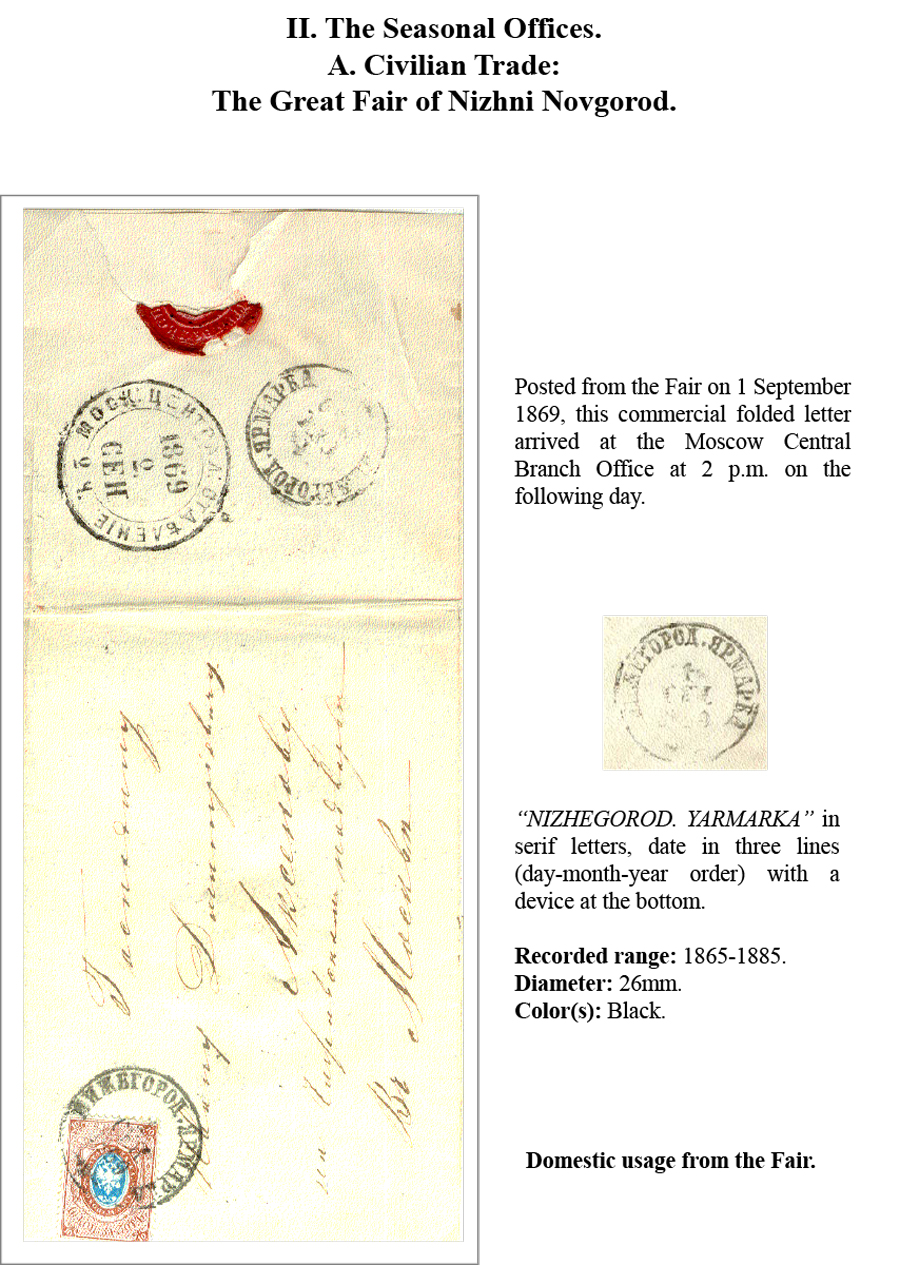 II. The Seasonal Offices.
A. Civilian Trade:
The Great Fair of Nizhni Novgorod.
МОСК. ЦЕНТРАЛ. ОТДѢЛЕНІЕ
1869
СЕН
2 Ч.
НИЖЕГОРОД. ЯРМАРКА
Posted from the Fair on 1 September
1869, this commercial folded letter
arrived at the Moscow Central
Branch Office at 2 p.m. on the
following day.
НИЖЕГОРОД. ЯРМАРКА
1
СЕН
1869
“NIZHEGOROD. YARMARKA” in
serif letters, date in three lines
(day-month-year order) with a
device at the bottom.
Recorded range: 1865-1885.
Diameter: 26mm.
Color(s): Black.
Въ Москвѣ
НИЖЕГОРОД. ЯРМАР
Domestic usage from the Fair.